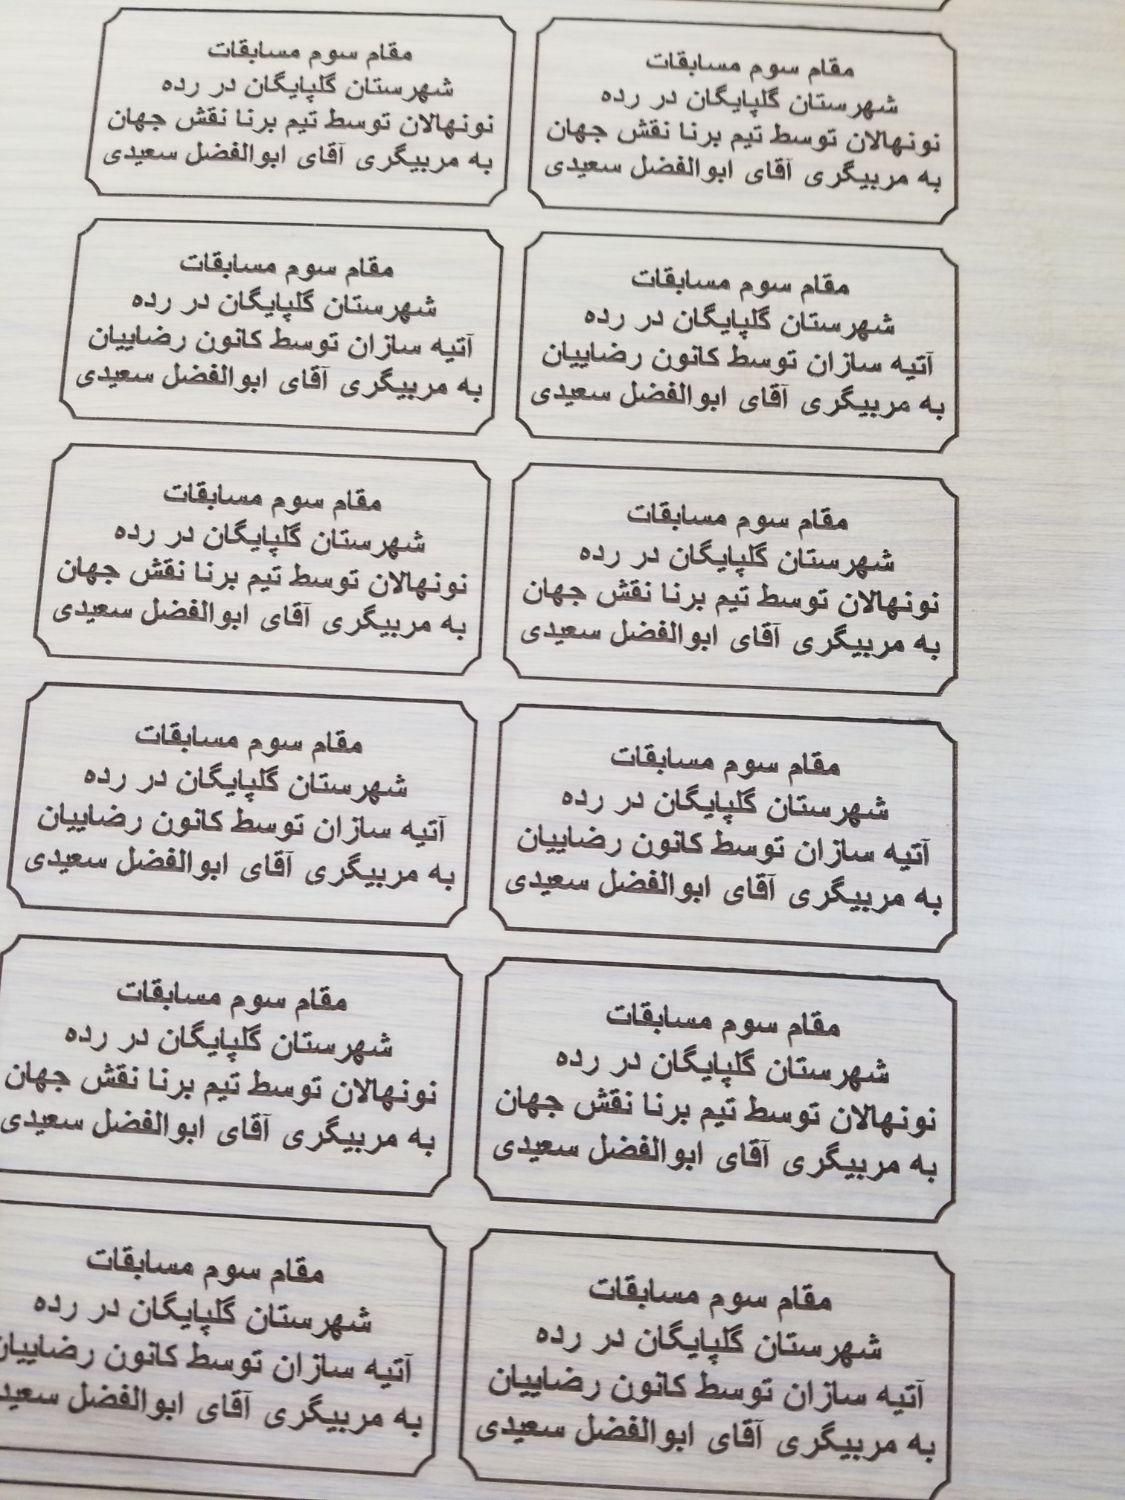 مقام سوم مسابقات
شهرستان گلپایگان در رده
نونهالان توسط تیم برنا نقش جهان
به مربیگری آقای ابوالفضل سعیدی
مقام سوم مسابقات
شهرستان گلپایگان در رده
نونهالان توسط تیم برنا نقش جهان
به مربیگری آقای ابوالفضل سعیدی
مقام سوم مسابقات
شهرستان گلپایگان در رده
آتیه سازان توسط کانون رضاییان
به مربیگری آقای ابوالفضل سعیدی
مقام سوم مسابقات
شهرستان گلپایگان در رده
آتیه سازان توسط کانون رضاییان
به مربیگری آقای ابوالفضل سعیدی
مقام سوم مسابقات
شهرستان گلپایگان در رده
نونهالان توسط تیم برنا نقش جهان
به مربیگری آقای ابوالفضل سعیدی
مقام سوم مسابقات
شهرستان گلپایگان در رده
نونهالان توسط تیم برنا نقش جهان
به مربیگری آقای ابوالفضل سعیدی
مقام سوم مسابقات
شهرستان گلپایگان در رده
آتیه سازان توسط کانون رضاییان
به مربیگری آقای ابوالفضل سعیدی
مقام سوم مسابقات
شهرستان گلپایگان در رده
آتیه سازان توسط کانون رضاییان
به مربیگری آقای ابوالفضل سعیدی
مقام سوم مسابقات
شهرستان گلپایگان در رده
نونهالان توسط تیم برنا نقش جهان
به مربیگری آقای ابوالفضل سعیدی
مقام سوم مسابقات
شهرستان گلپایگان در رده
نونهالان توسط تیم برنا نقش جهان
به مربیگری آقای ابوالفضل سعیدی
مقام سوم مسابقات
شهرستان گلپایگان در رده
آتیه سازان توسط کانون رضاییان
به مربیگری آقای ابوالفضل سعیدی
مقام سوم مسابقات
شهرستان گلپایگان در رده
آتیه سازان توسط کانون رضاییان
به مربیگری آقای ابوالفضل سعید